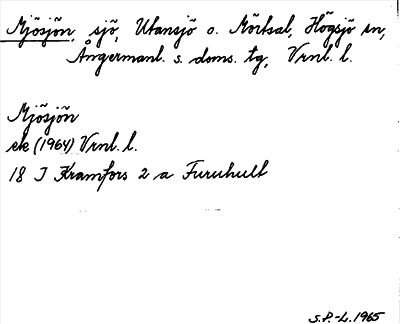 Mjösjön, sjö, Utansjö o. Mörtsal, Högsjö sn,
Ångermanl. s. doms. tg, Vrnl. l.
Mjösjön
ek (1964) Vrnl. l.
18 J Kramfors 2 a Furuhult
S.P.-L. 1965